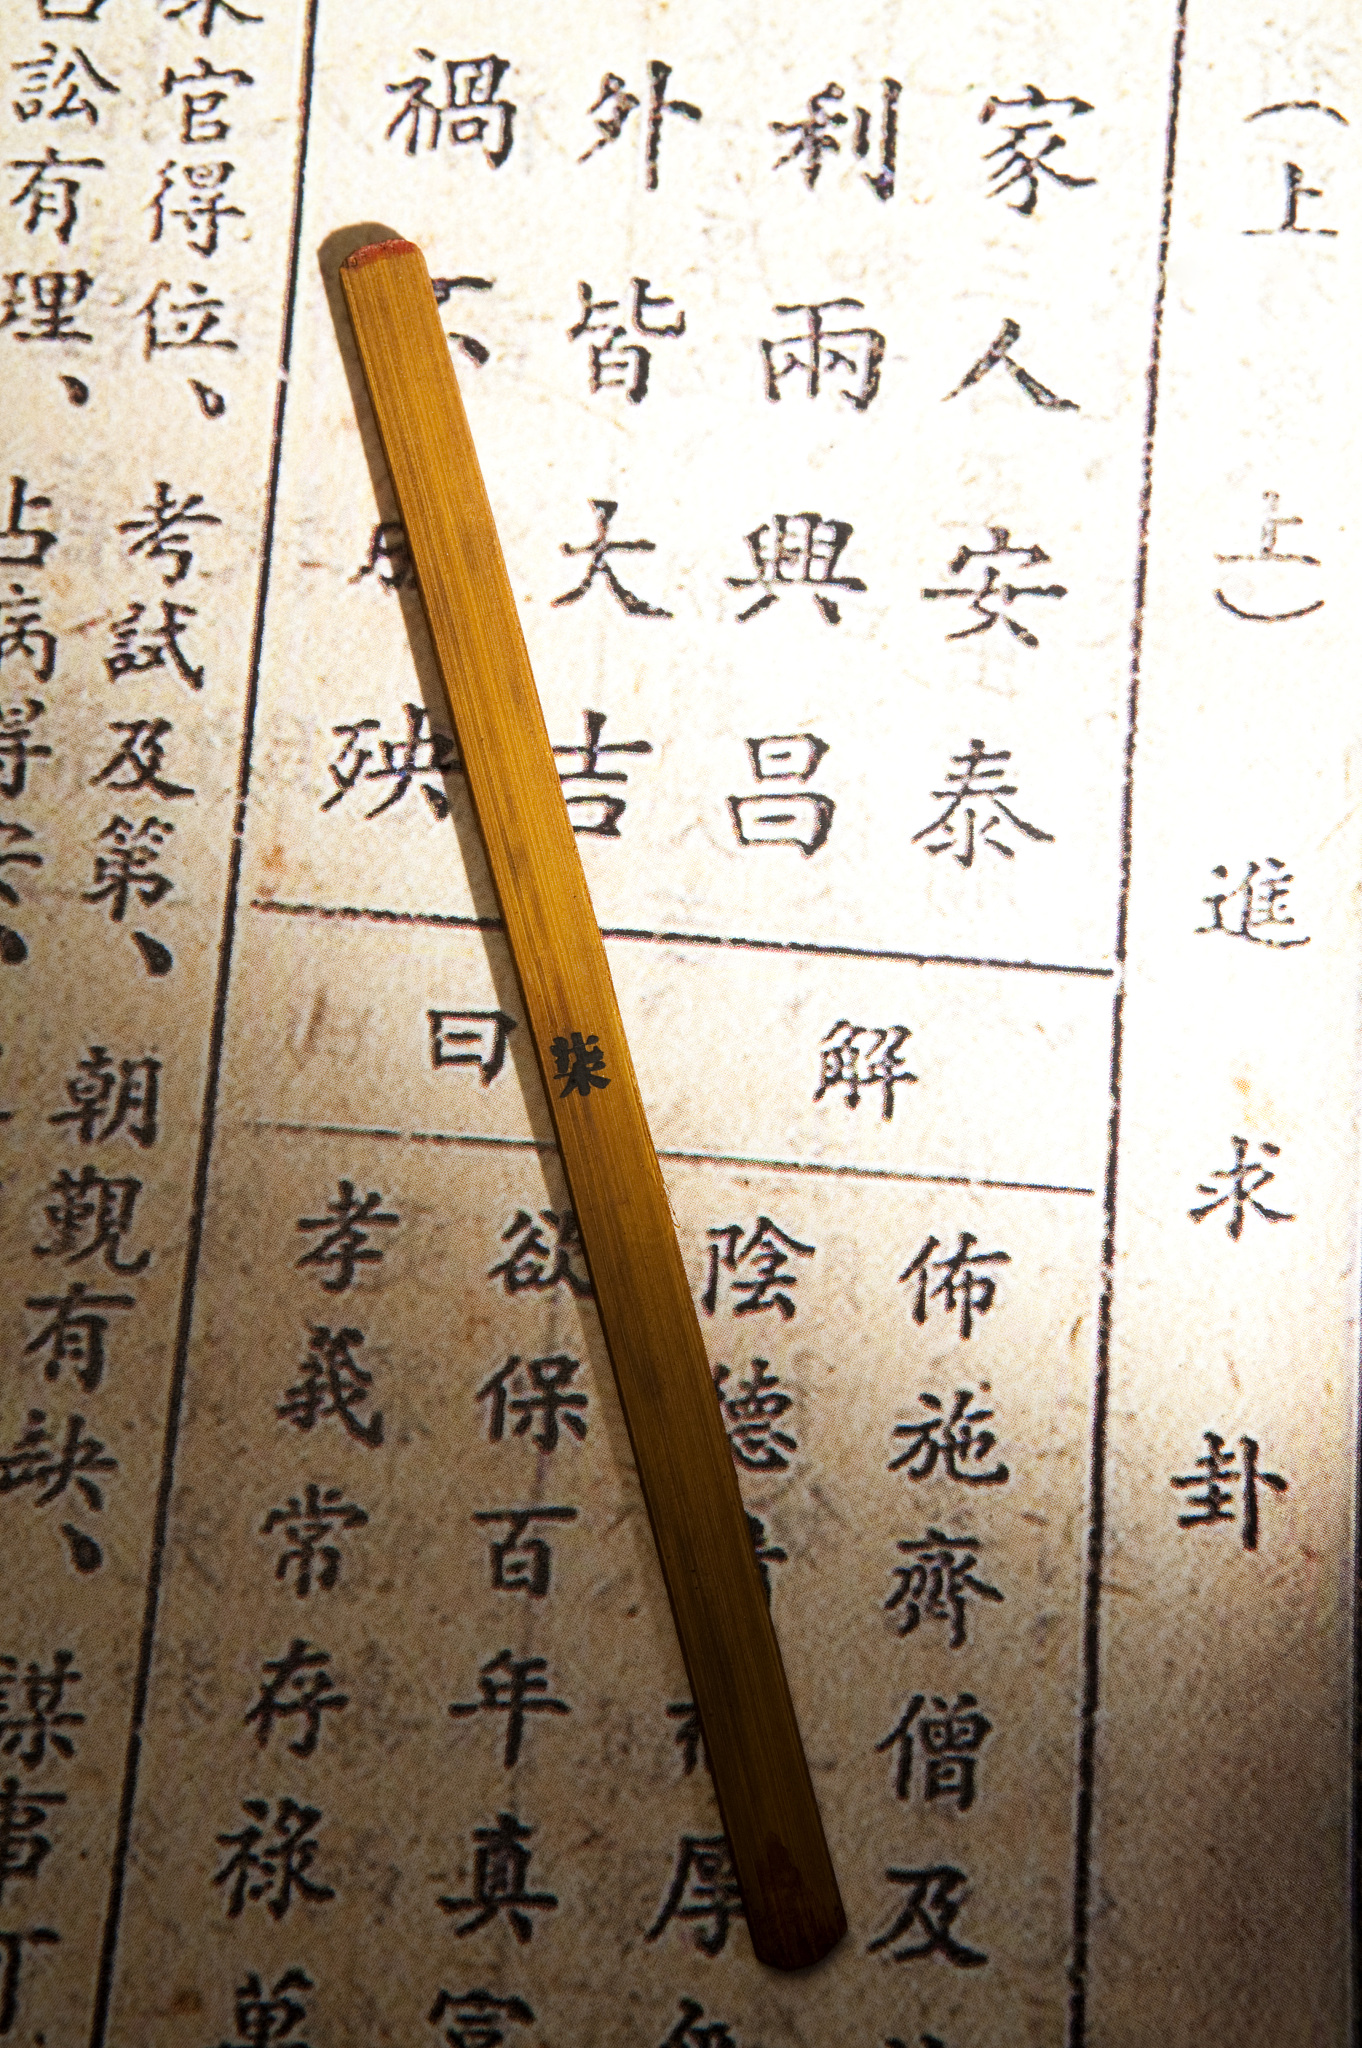 （上上）進求卦
家人安泰
利兩興昌
外皆大吉
禍不殃
解曰
佈施齊僧及
陰德厚
欲保百年真富
孝義常存祿萬
官得位、考試及第、朝覲有缺、
訟有理、占病得謀事可
柒